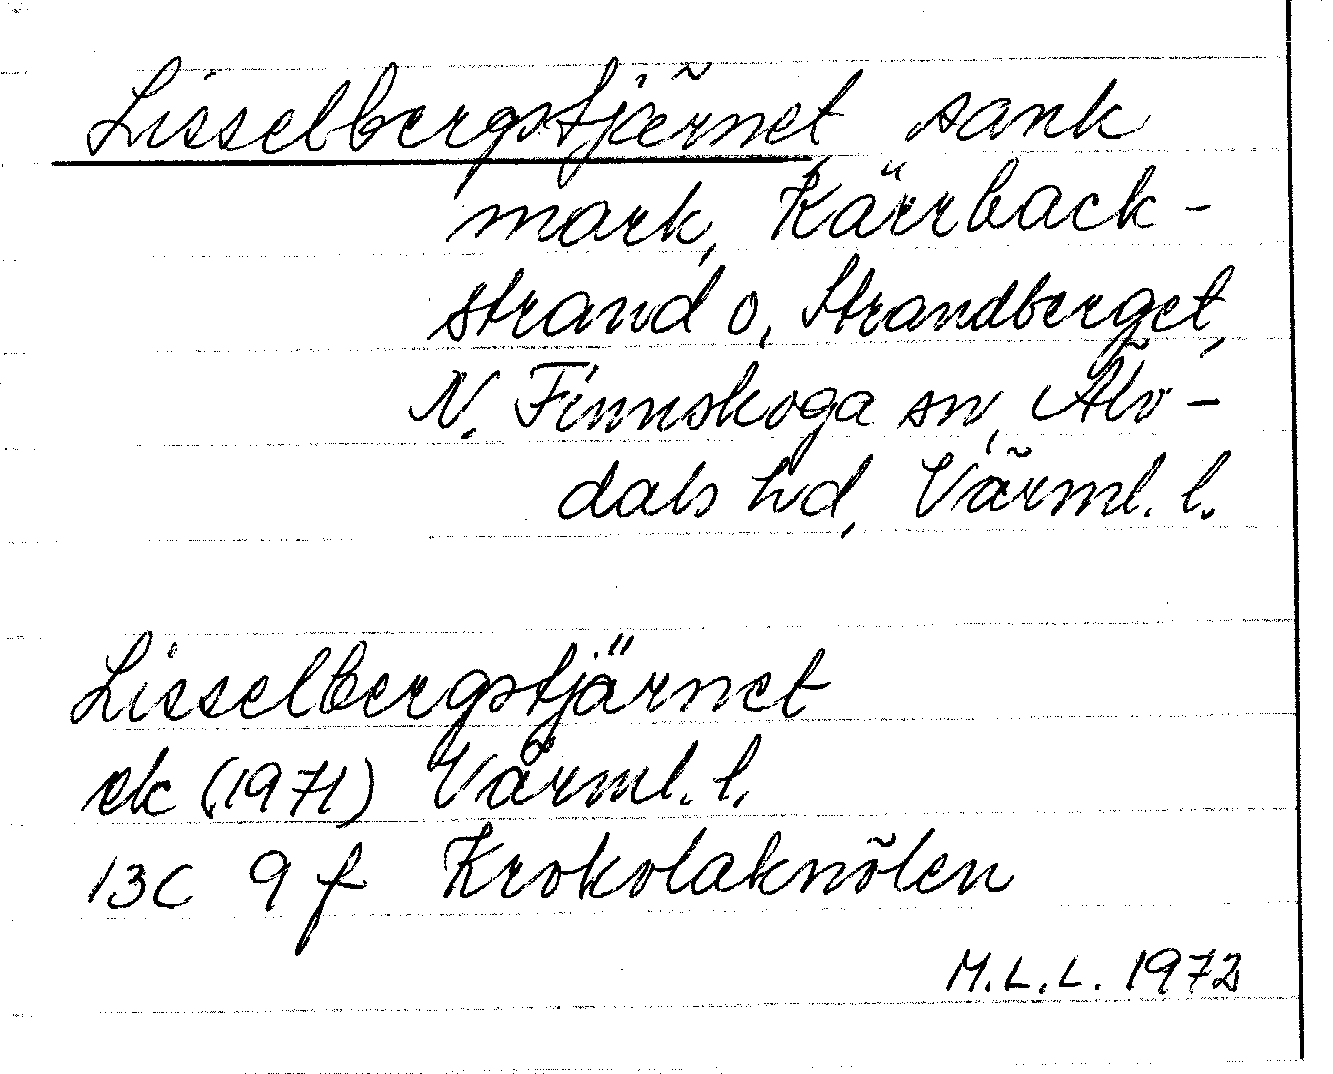 Lisselbergstjärnet sank
mark, Kärrback-
strand o. Strandberget,
N. Finnskoga sn, Älv-
dals hd, Värml. l.
Lisselbergstjärnet
ek (1971) Värml. l.
13C 9 f Krokolaknölen
M.L.L. 1972